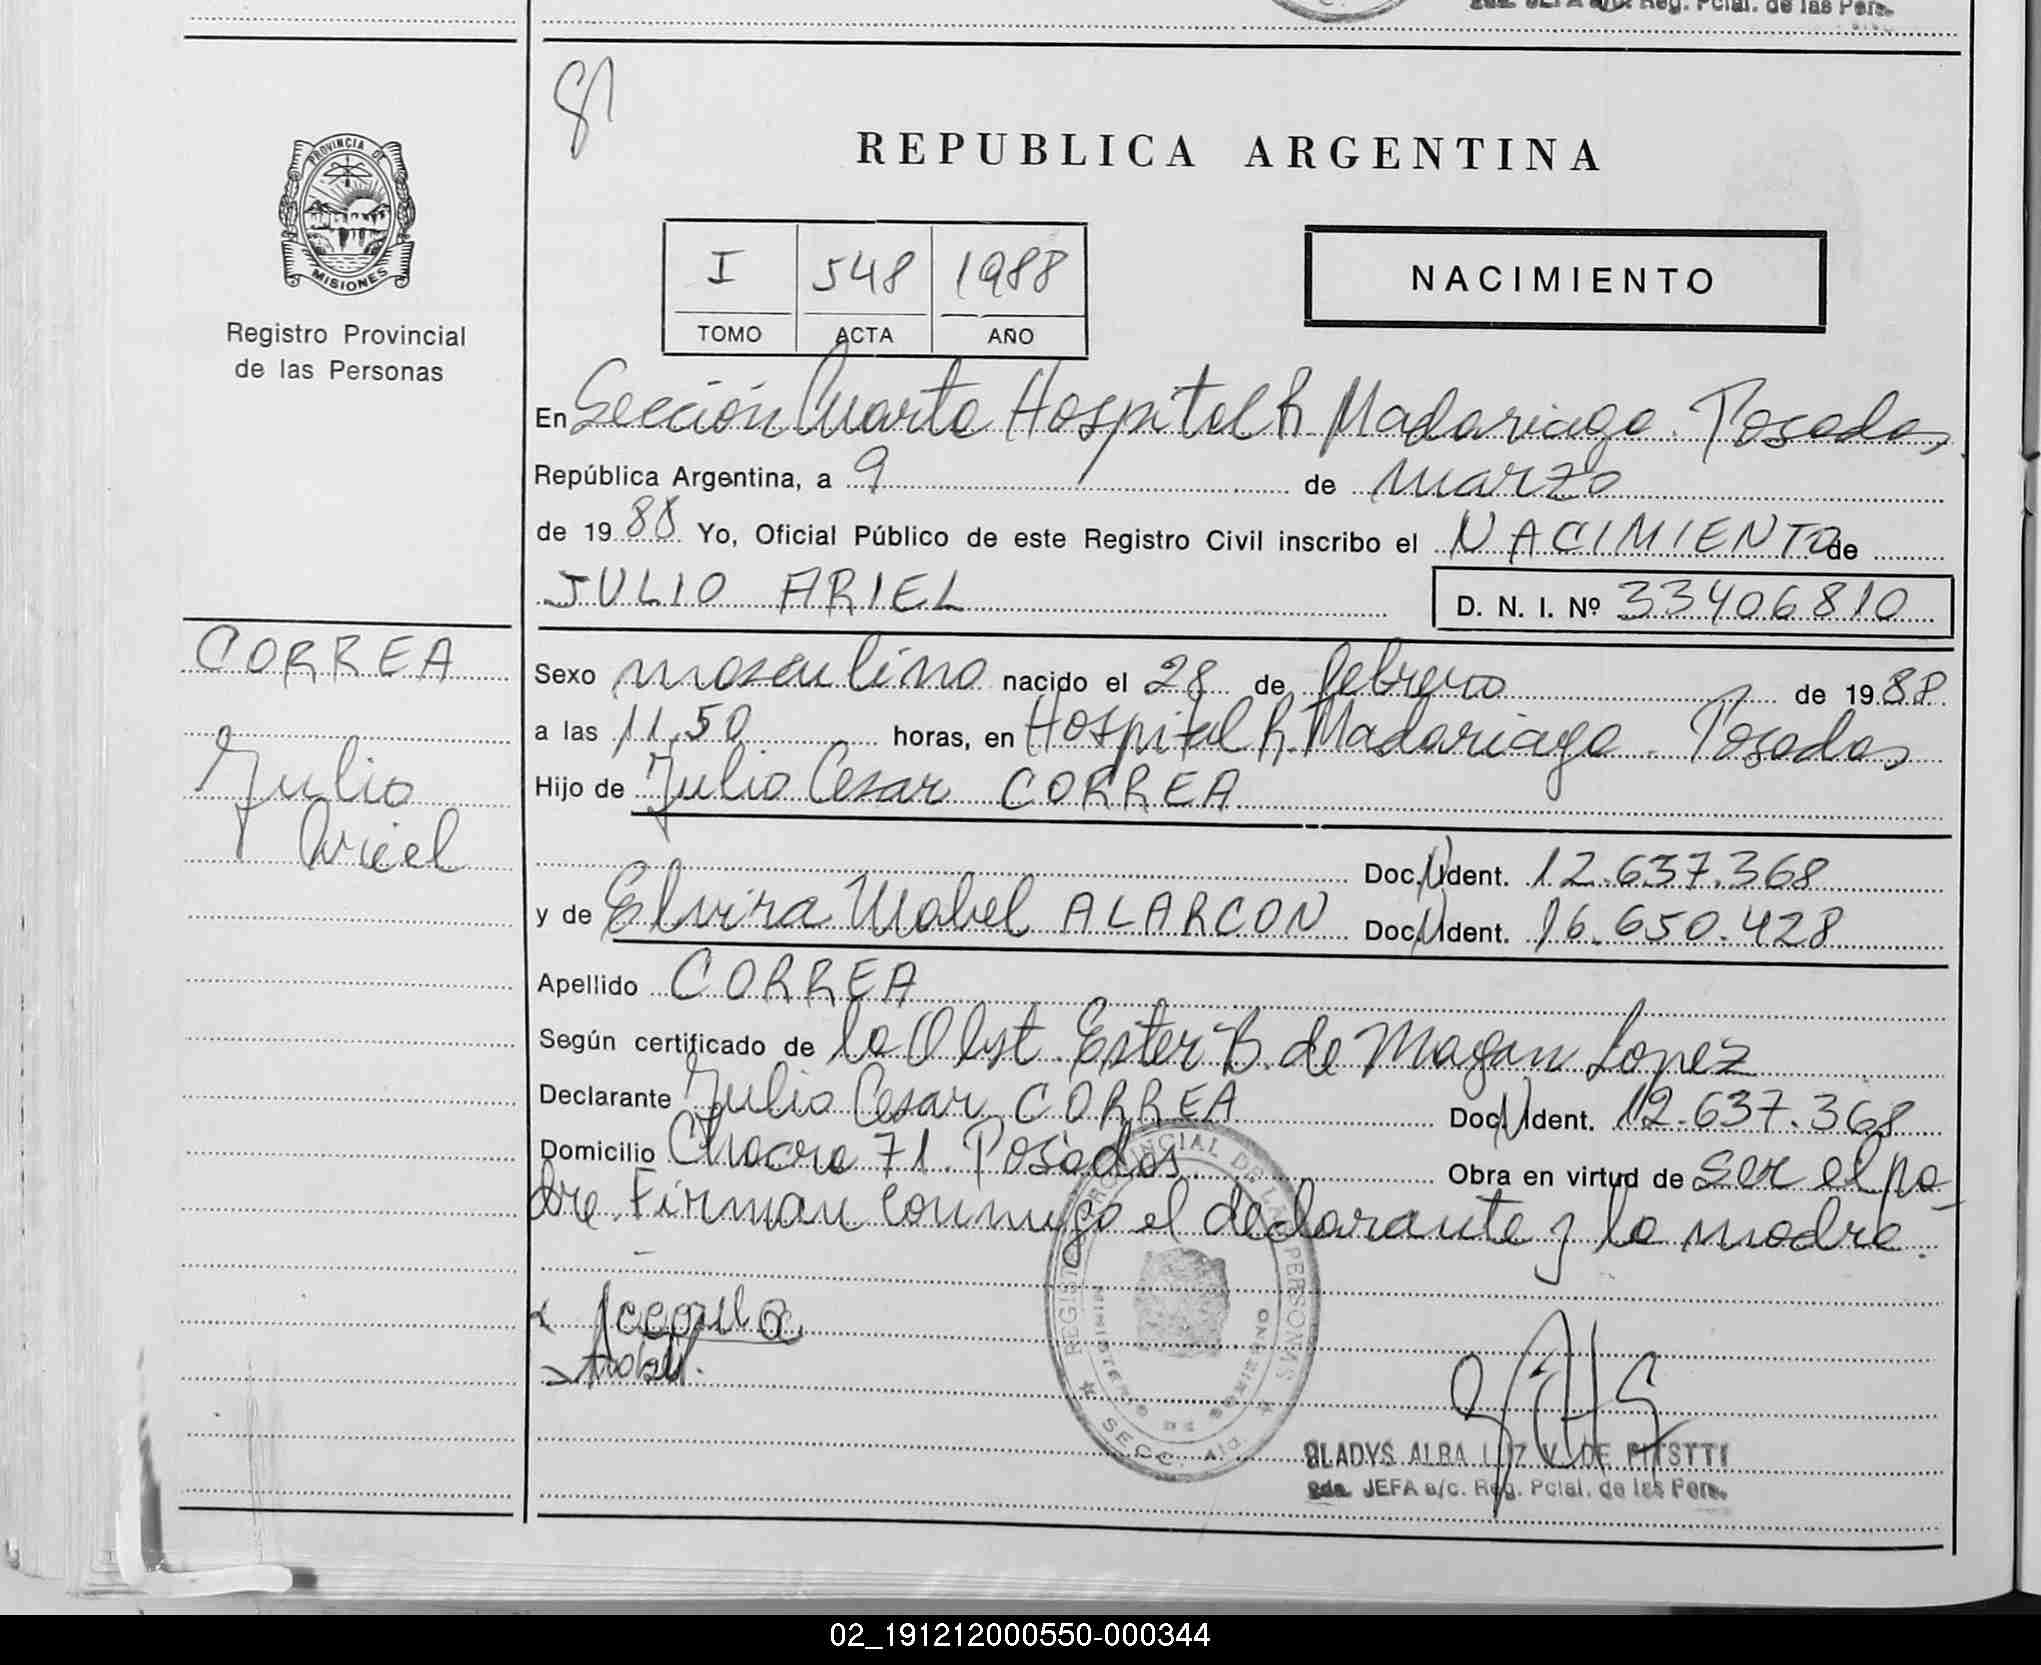 2da. JEFA a/c. Reg. Pcial. de las Pers.
PROVINCIA DE
MISIONES
Registro Provincial
de las Personas
REPUBLICA ARGENTINA
I 548 1988
TOMO ACTA AÑO
NACIMIENTO
En Sección Cuarta Hospital R Madariaga. Posadas,
República Argentina, a 9 de marzo
de 1988 Yo, Oficial Público de este Registro Civil inscribo el NACIMIENTO de
JULIO ARIEL D. N. I. Nº 33406810
CORREA
Julio
Ariel
Sexo masculino nacido el 28 de febrero de 1988.
a las 11,50 horas, en Hospital R. Madariaga. Posadas
Hijo de Julio Cesar CORREA
Doc. N Ident. 12.637.368
y de Elvira Mabel ALARCON Doc. N Ident. 16.650.428
Apellido CORREA
Según certificado de la Obst. Ester B. de Magan Lopez
Declarante Julio Cesar CORREA Doc. N Ident. 12.637.368
Domicilio Chacra 71. Posadas. Obra en virtud de ser el pa-
dre. Firman conmigo el declarante y la madre.
REGISTRO PROVINCIAL DE LAS PERSONAS
MINISTERIO DE GOBIERNO
SECC. 4ta.
GLADYS ALBA DE
2da. JEFA a/c. Reg. Pcial. de las Pers.
02_191212000550-000344